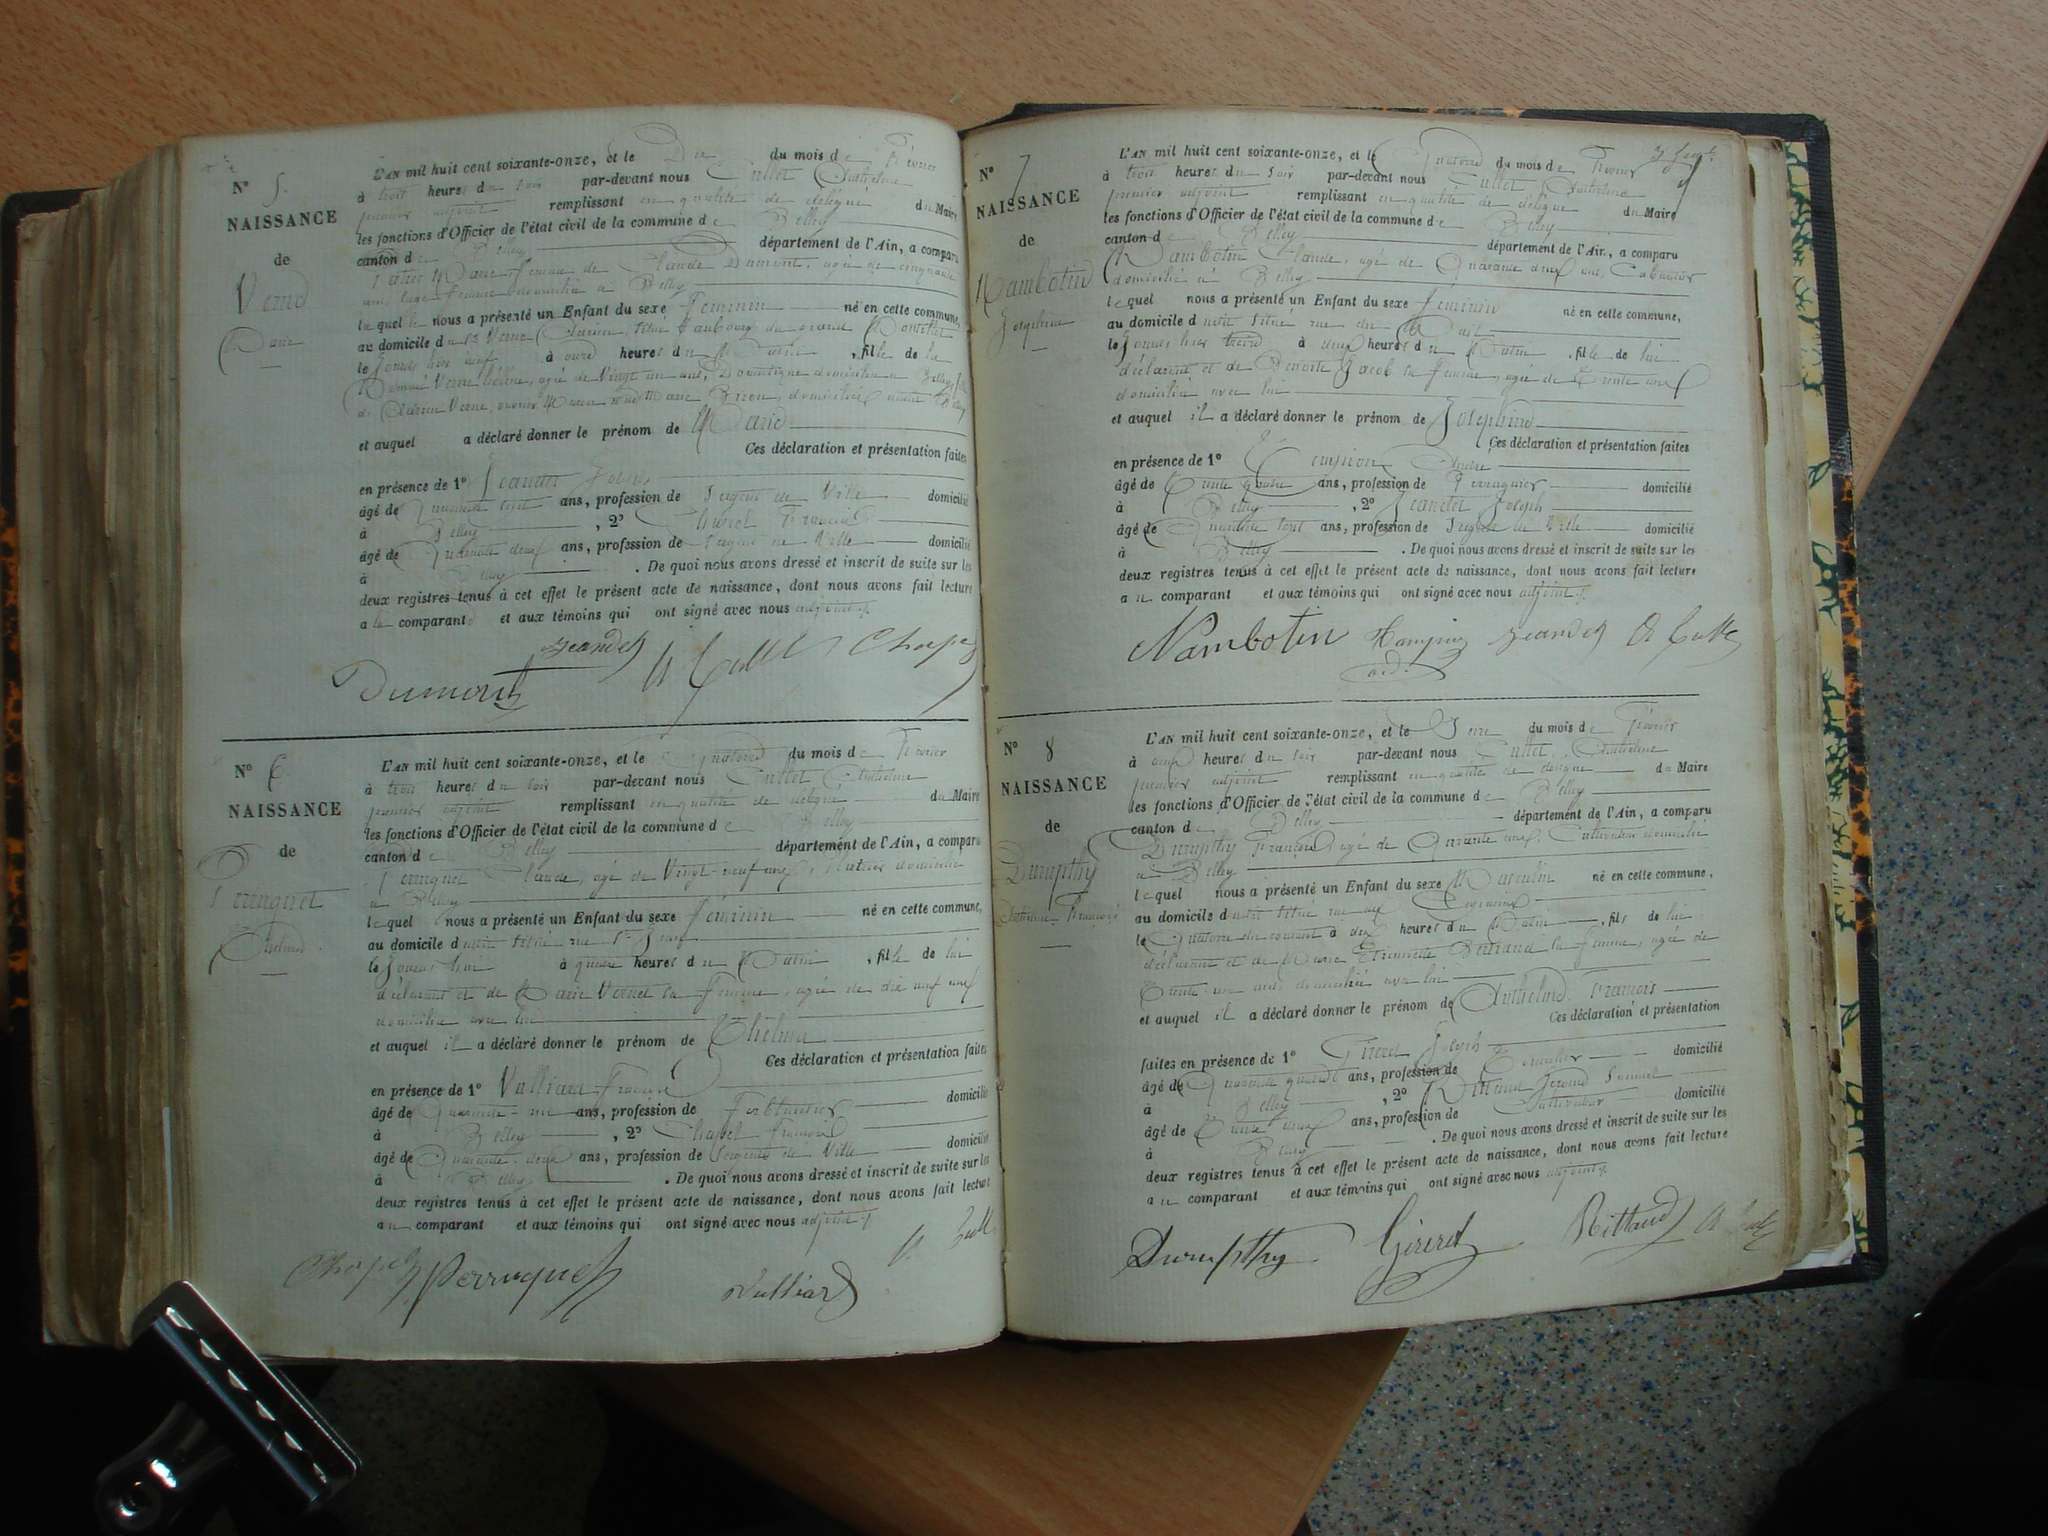 N° 5.
NAISSANCE
de
Marie
L'AN mil huit cent soixante-onze, et le Dix du mois de Février
à trois heures du soir par-devant nous Cullet Anthelme
premier adjoint remplissant en qualité de délégué du Maire
les fonctions d'Officier de l'état civil de la commune de Belley
canton de Belley département de l'Ain, a comparu
Marie femme de Claude Dumont, agée de cinquante
ans, sage femme domiciliée à Belley
laquelle nous a présenté un Enfant du sexe féminin né en cette commune,
au domicile du Sr Verne situé faubourg du grand
le jour hier neuf à onze heures du Matin, fille de
agée de Vingt un ans, domiciliée à Belley, fille
de Verne, domiciliés
et auquel a déclaré donner le prénom de Marie
Ces déclaration et présentation faites
en présence de 1° Jeandet Joseph
âgé de Quarante huit ans, profession de Sergent de Ville domicilié
à Belley, 2° Chapel François
âgé de Quarante deux ans, profession de Sergent de Ville domicilié
à Belley. De quoi nous avons dressé et inscrit de suite sur les
deux registres tenus à cet effet le présent acte de naissance, dont nous avons fait lecture
a la comparante et aux témoins qui ont signé avec nous adjoint
Jeandet A Cullet Chapel
Dumont
N° 6
NAISSANCE
de
Perruquet
Thelma
L'AN mil huit cent soixante-onze, et le Quatorze du mois de Février
à trois heures du soir par-devant nous Cullet Anthelme
premier adjoint remplissant en qualité de délégué du Maire
les fonctions d'Officier de l'état civil de la commune de Belley
canton de Belley département de l'Ain, a comparu
Perruquet Claude, agé de Vingt-neuf ans, domicilié
à Belley
lequel nous a présenté un Enfant du sexe féminin né en cette commune,
au domicile dudit situé rue St Jean
le jour hier à quatre heures du Matin, fille de lui
déclarant et de Marie Vernet sa femme, agée de dix neuf ans
domiciliée avec lui
et auquel il a déclaré donner le prénom de Thelma
Ces déclaration et présentation faites
en présence de 1° Vulliard François
âgé de Quarante-un ans, profession de Ferblantier domicilié
à Belley, 2° Chapel François
âgé de Quarante deux ans, profession de Sergent de Ville domicilié
à Belley. De quoi nous avons dressé et inscrit de suite sur les
deux registres tenus à cet effet le présent acte de naissance, dont nous avons fait lecture
au comparant et aux témoins qui ont signé avec nous adjoint
Chapel Perruquet Vulliard A Cullet
N° 7
NAISSANCE
de
Nambotin
Joséphine
L'AN mil huit cent soixante-onze, et le Quatorze du mois de Février
à trois heures du soir par-devant nous Cullet Anthelme
premier adjoint remplissant en qualité de délégué du Maire
les fonctions d'Officier de l'état civil de la commune de Belley
canton de Belley département de l'Ain, a comparu
Nambotin Claude, agé de Quarante deux ans,
domicilié à Belley
lequel nous a présenté un Enfant du sexe féminin né en cette commune,
au domicile dudit situé rue du Mail
le jour hier treize à deux heures du Matin, fille de lui
déclarant et de Benoite Jacob sa femme, agée de Trente ans
domiciliée avec lui
et auquel il a déclaré donner le prénom de Joséphine
Ces déclaration et présentation faites
en présence de 1°
âgé de Trente quatre ans, profession de Perruquier domicilié
à Belley, 2° Jeandet Joseph
âgé de Quarante huit ans, profession de Sergent de Ville domicilié
à Belley. De quoi nous avons dressé et inscrit de suite sur les
deux registres tenus à cet effet le présent acte de naissance, dont nous avons fait lecture
au comparant et aux témoins qui ont signé avec nous adjoint
Nambotin Jeandet A Cullet
N° 8
NAISSANCE
de
Dumpthy
Anthelme François
L'AN mil huit cent soixante-onze, et le Seize du mois de Février
à onze heures du soir par-devant nous Cullet Anthelme
premier adjoint remplissant en qualité de délégué du Maire
les fonctions d'Officier de l'état civil de la commune de Belley
canton de Belley département de l'Ain, a comparu
Dumpthy François agé de Quarante ans, Cultivateur domicilié
à Belley
lequel nous a présenté un Enfant du sexe Masculin né en cette commune,
au domicile dudit situé rue des
le Quatorze du courant à dix heures du Matin, fils de lui
déclarant et de Marie Etiennette Bertrand sa femme, agée de
Trente un ans domiciliée avec lui
et auquel il a déclaré donner le prénom de Anthelme François
Ces déclaration et présentation
faites en présence de 1° Joseph
âgé de Quarante quatre ans, profession de domicilié
à Belley, 2°
âgé de Trente deux ans, profession de Cultivateur domicilié
à Belley. De quoi nous avons dressé et inscrit de suite sur les
deux registres tenus à cet effet le présent acte de naissance, dont nous avons fait lecture
au comparant et aux témoins qui ont signé avec nous adjoint
Dumpthy Mittaud A Cullet